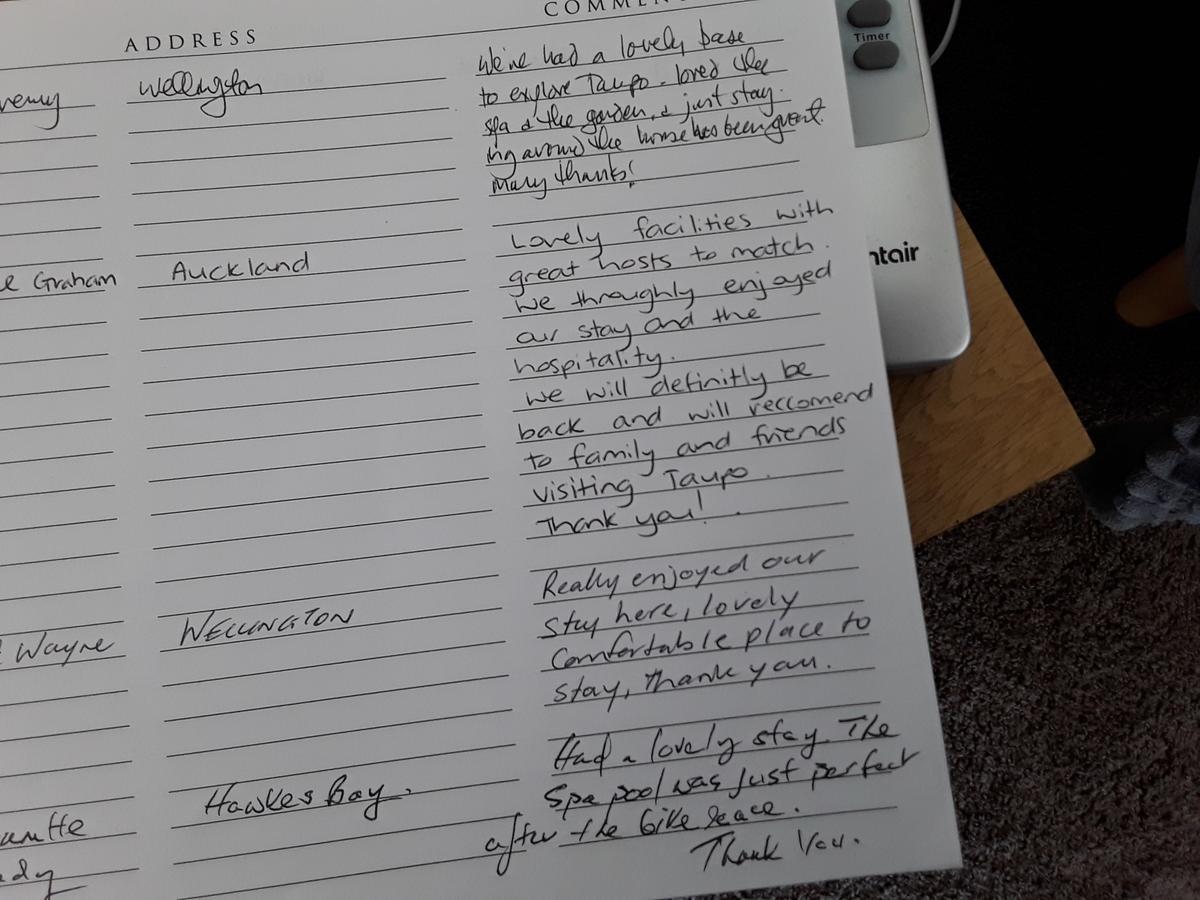 ADDRESS COMMEN
Timer
Wellington
We've had a lovely base
to explore Taupo - loved the
spa & the garden, & just stay-
ing around the house has been great.
Many thanks!
Lovely facilities with
e Graham Auckland
great hosts to match.
We throughly enjoyed
our stay and the
hospitality.
we will definitly be
back and will reccomend
to family and friends
visiting Taupo.
Thank you!
Really enjoyed our
Wayne WELLINGTON
stay here, lovely
comfortable place to
stay, thank you.
Had a lovely stay The
Hawkes Bay.
Spa pool was just perfect
after the bike Race.
Thank You.
ntair